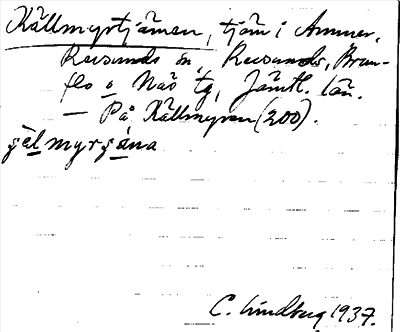 Källmyrtjärnen, tjärn i Ammer,
Revsunds sn, Revsunds, Brun-
flo o Näs tg, Jämtl. län.
— På Källmyren (200).
C. Lindberg 1937.